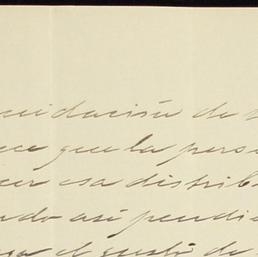 cuidacisn de
que la pers
cer esa distrib
ndo así pendie
el gusto de